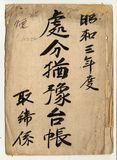 昭和三年度
處分猶豫台帳
取締係